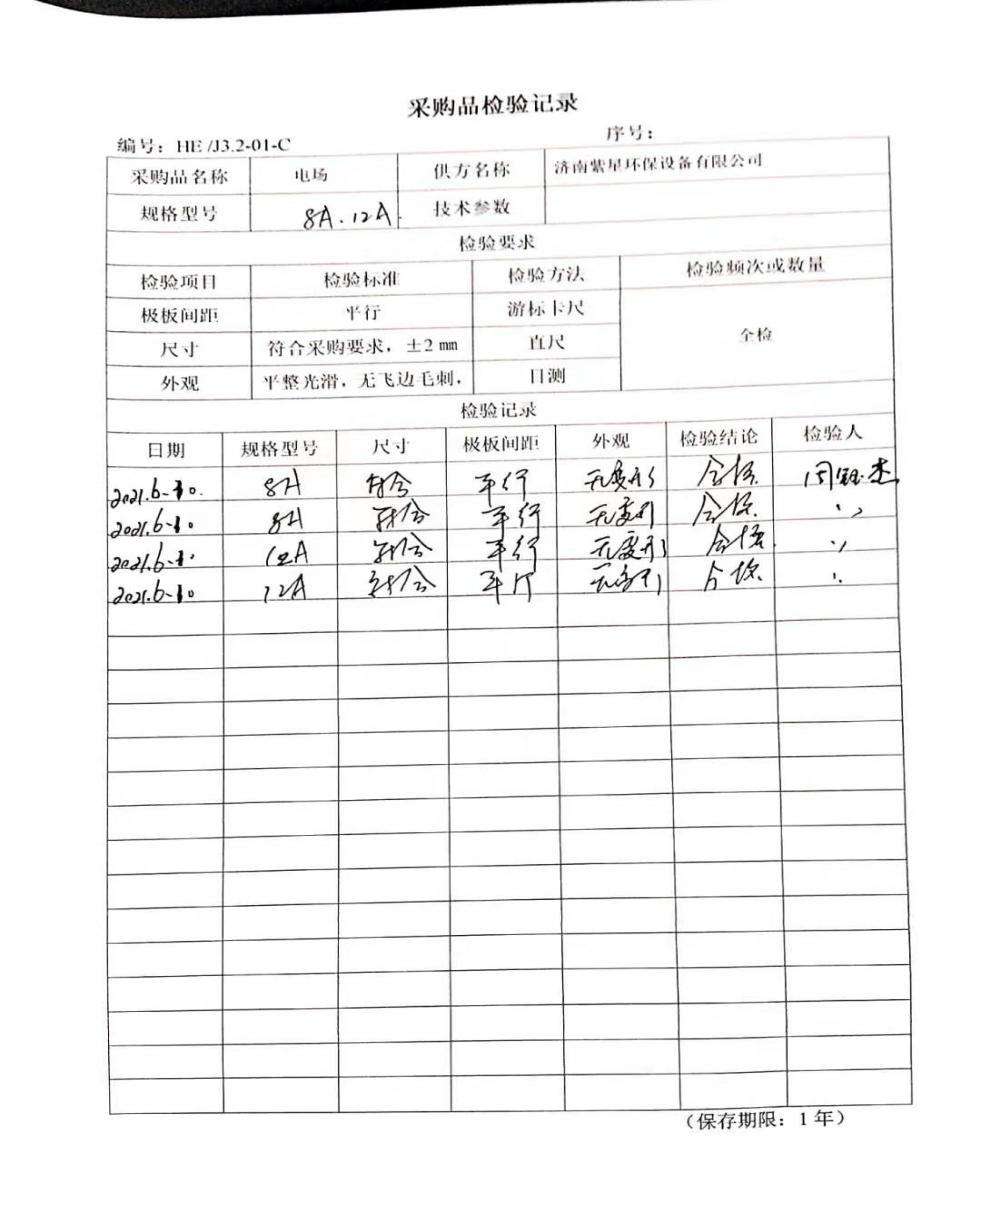 采购品检验记录
编号：HE /J3.2-01-C 序号：
采购品名称 电场 供方名称 济南紫星环保设备有限公司
规格型号 8A.12A. 技术参数
检验要求
检验项目 检验标准 检验方法 检验频次或数量
极板间距 平行 游标卡尺 全检
尺寸 符合采购要求，±2 mm 直尺
外观 平整光滑，无飞边毛刺， 目测
检验记录
日期 规格型号 尺寸 极板间距 外观 检验结论 检验人
2021.6-10. 8A 符合 平行 无变形 合格
2021.6-10 8A 符合 平行 无变形 合格 〃
2021.6-10 12A 符合 平行 无变形 合格 〃
2021.6-10 12A 符合 平行 无变形 合格 〃
（保存期限：1 年）